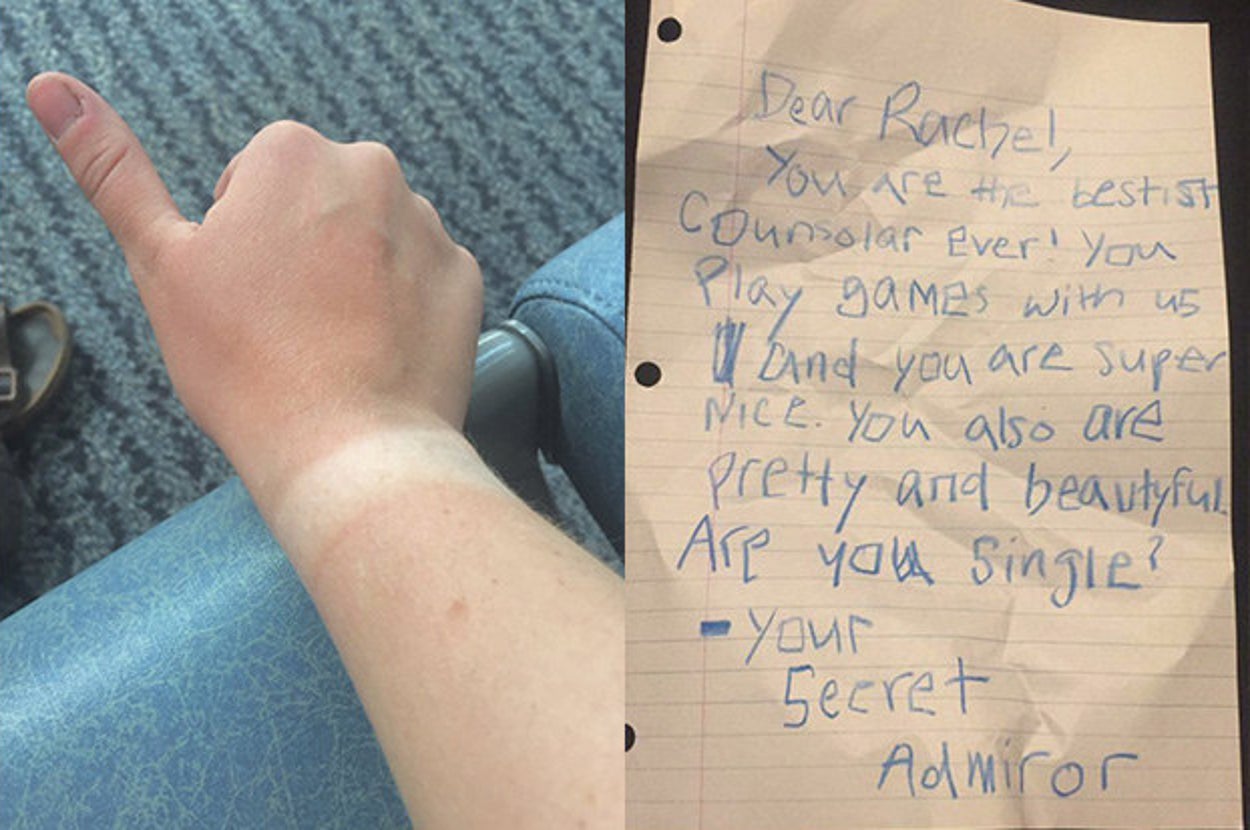 Dear Rachel,
You are the bestist
Counsolar ever! You
Play games with us
and you are super
Nice. You also are
pretty and beautyful
Are you Single?
- Your
Secret
Admiror